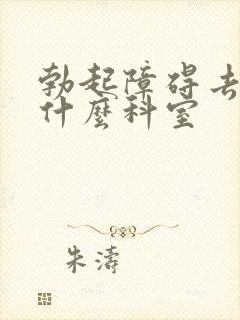 勃起障碍去
什麼科室
朱濤